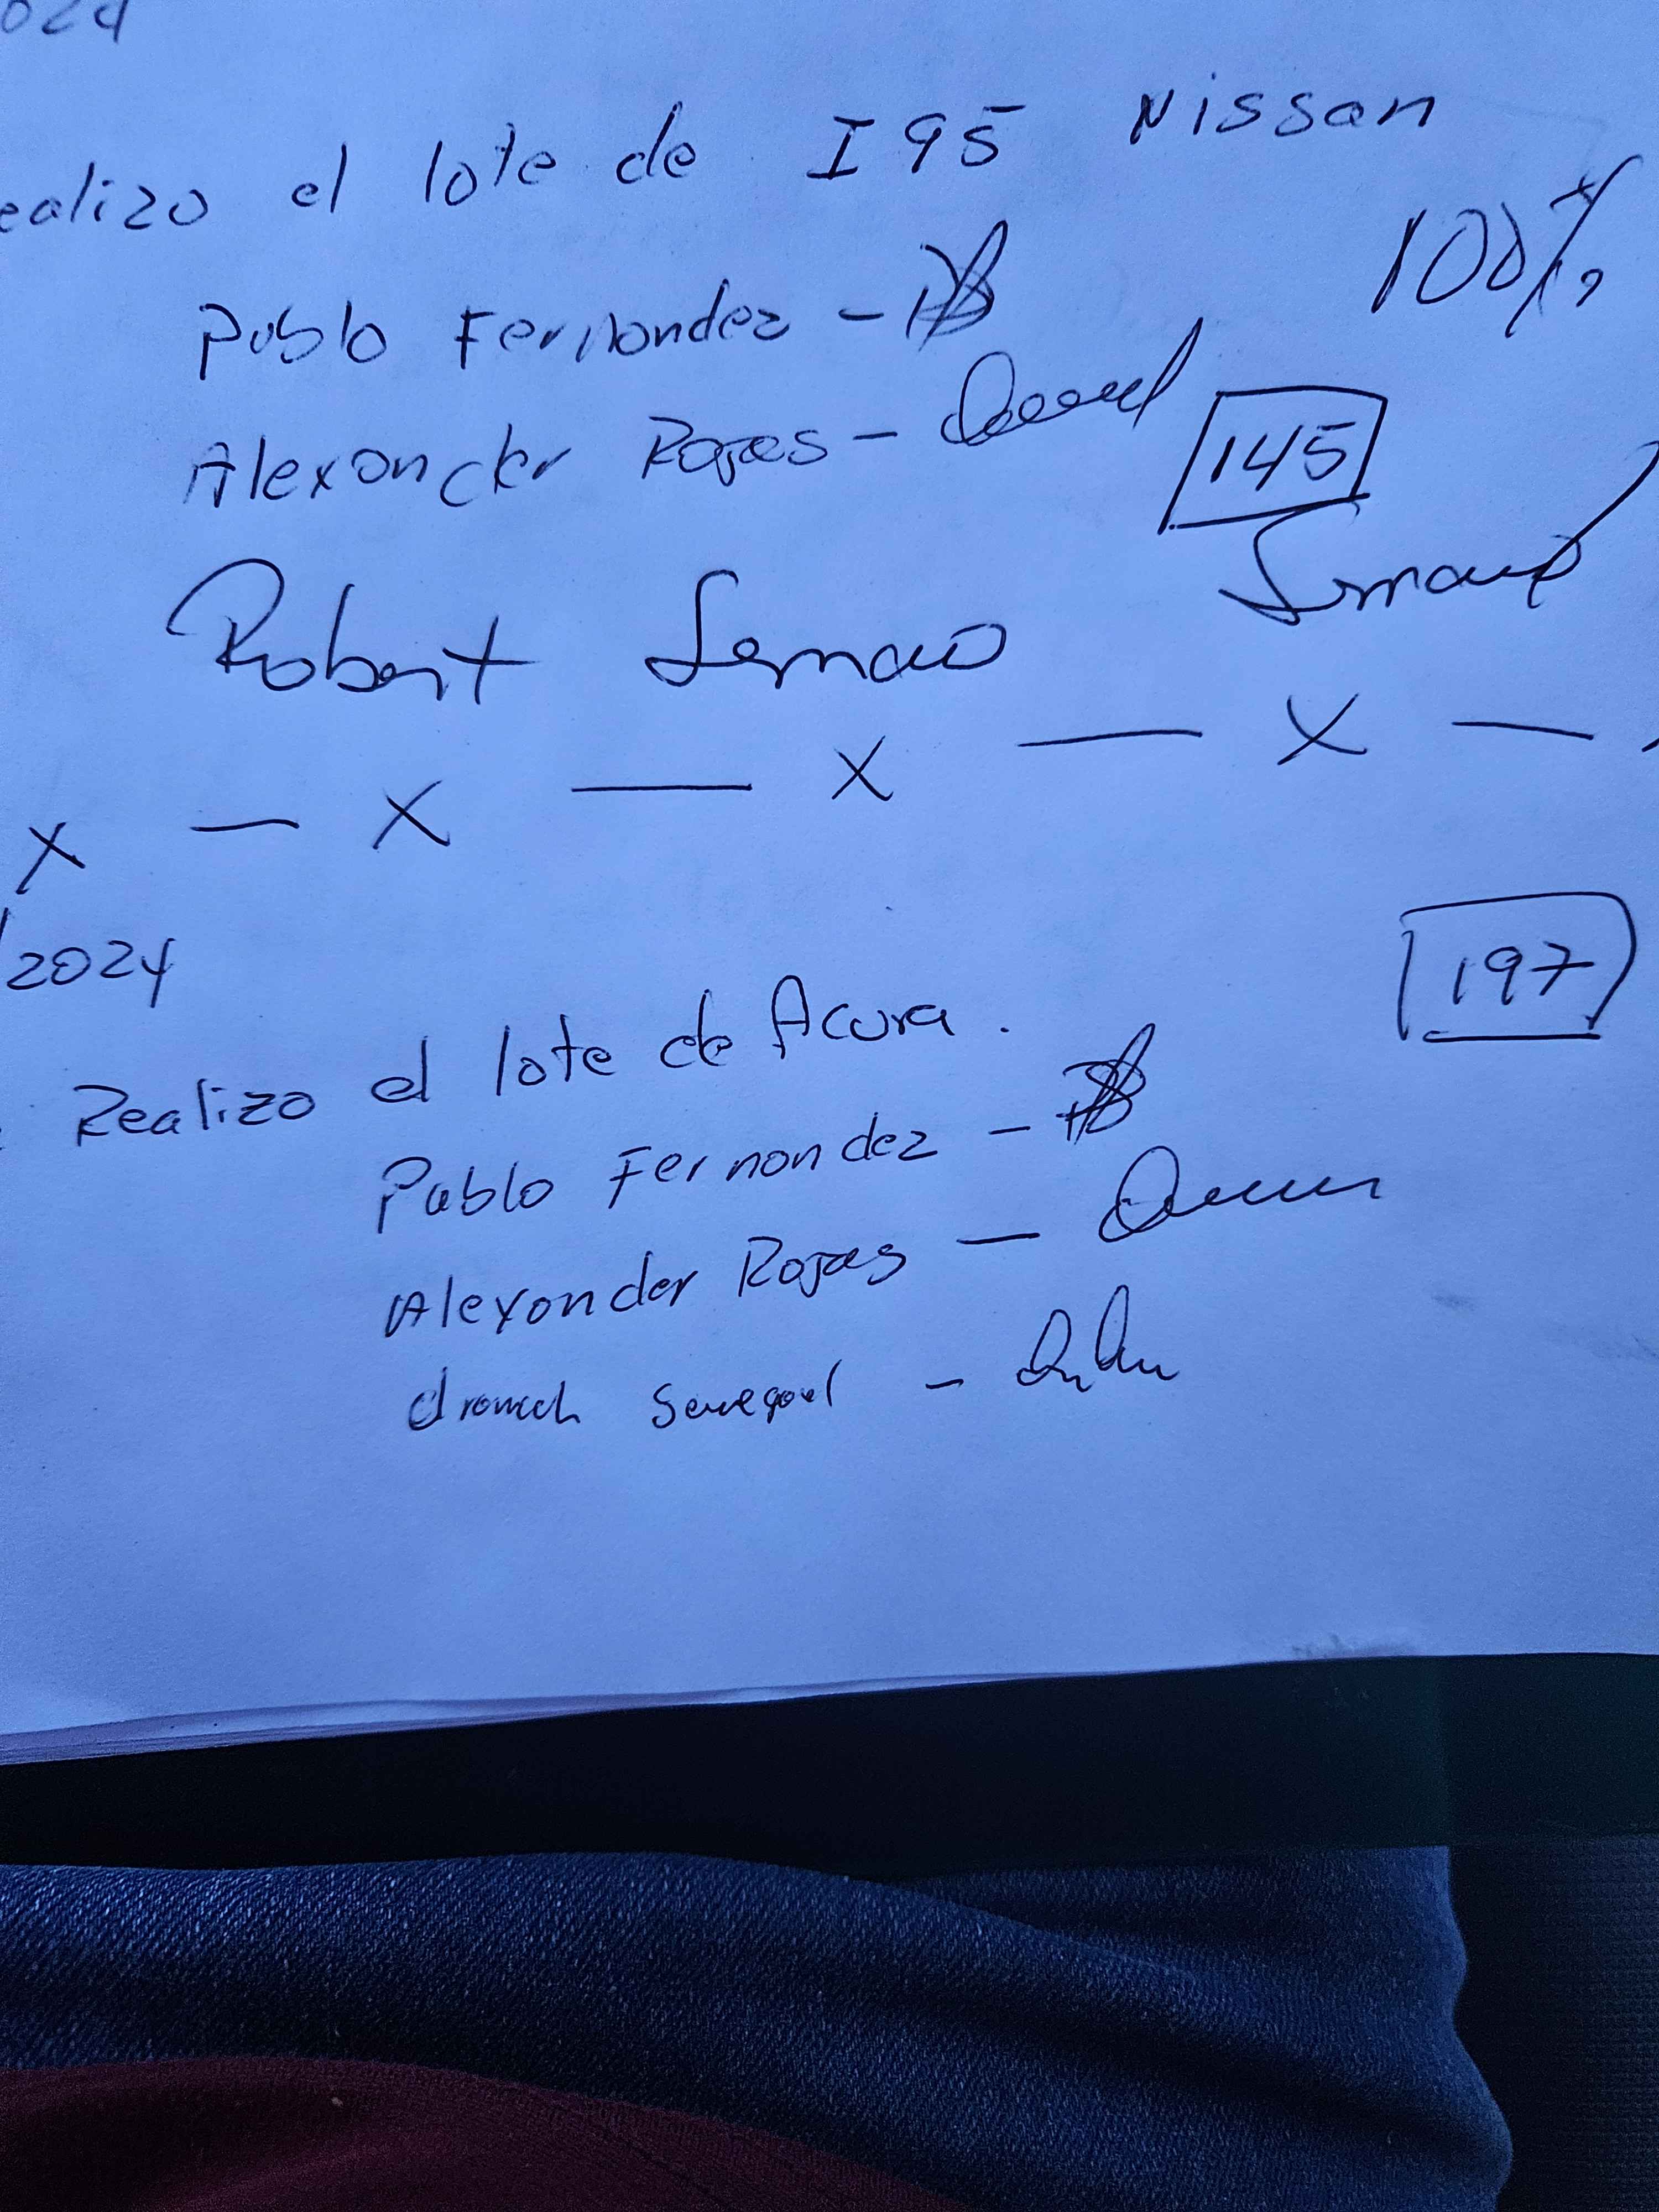 024
ealizo el lote de I95 Nissan
100%
Pablo Fernandez -
Alexander Rojas -
145
Robert
X - X — X — X —
/2024
197
Realizo el lote de Acura.
Pablo Fernandez -
Alexander Rojas —